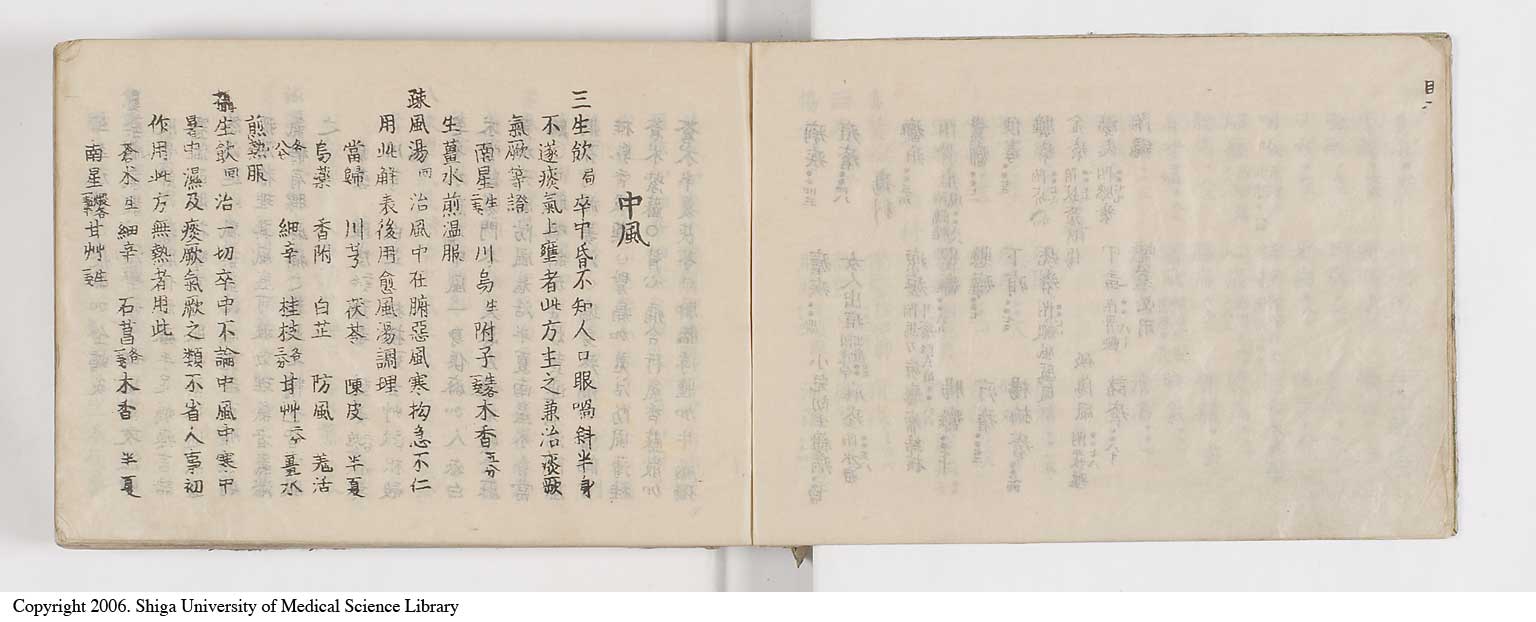 中風
三生飲局卒中昏不知人口眼喎斜半身
不遂痰氣上壅者此方主之兼治痰厥
氣厥等證
南星一戔生川烏生附子各一戔木香五分
生薑水煎温服
疎風湯回治風中在腑惡風寒拘急不仁
用此解表後用愈風湯調理
當歸 川芎 茯苓 陳皮 半夏
烏藥 香附 白芷 防風 羌活
各八分 細辛 桂枝各三分甘艸二分 薑水
煎熱服
攝生飲回治一切卒中不論中風中寒中
暑中濕及痰厥氣厥之類不省人事初
作用此方無熱者用此
蒼朮生細辛 石菖各一戔木香 半夏
南星各一戔甘艸一戔生
Copyright 2006. Shiga University of Medical Science Library